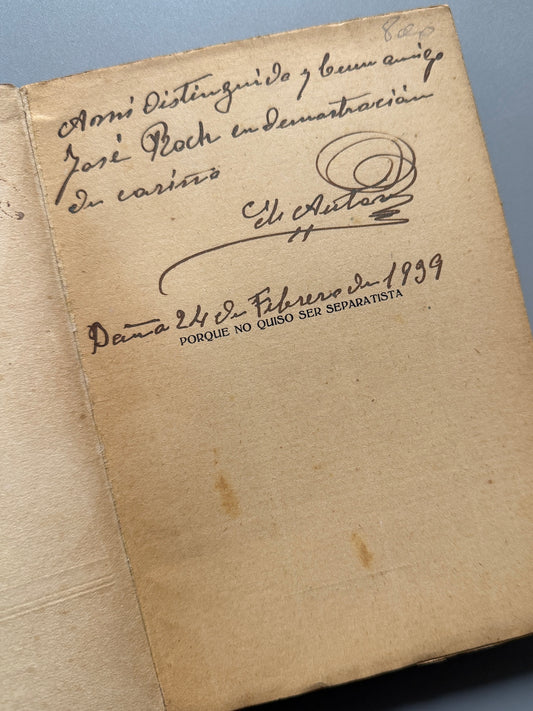 A mi distinguido y buen amigo
José Roch en demostración
de cariño
El Autor
a 24 de Febrero de 1939
PORQUE NO QUISO SER SEPARATISTA